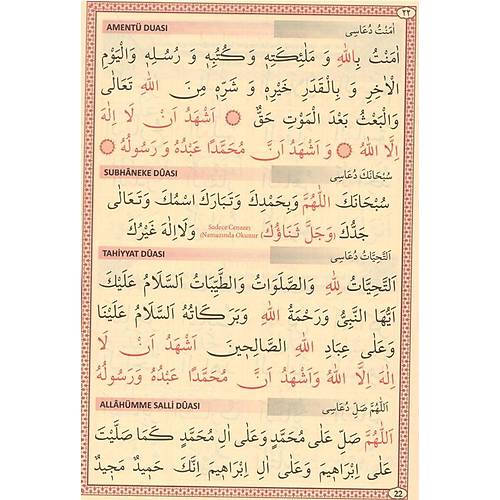 ٢٢
AMENTÜ DUASI اٰمَنْتُ دُعَاسِى
اٰمَنْتُ بِاللّٰهِ وَ مَلٰٓئِكَتِهٖ وَ كُتُبِهٖ وَ رُسُلِهٖ وَالْيَوْمِ
الْاٰخِرِ وَ بِالْقَدَرِ خَيْرِهٖ وَ شَرِّهٖ مِنَ اللّٰهِ تَعَالٰى
وَالْبَعْثُ بَعْدَ الْمَوْتِ حَقٌّ ۞ اَشْهَدُ اَنْ لَا اِلٰهَ
اِلَّا اللّٰهُ ۞ وَ اَشْهَدُ اَنَّ مُحَمَّدًا عَبْدُهُ وَ رَسُولُهُ ۞
SUBHÂNEKE DÛASI سُبْحَانَكَ دُعَاسِى
سُبْحَانَكَ اللّٰهُمَّ وَبِحَمْدِكَ وَتَبَارَكَ اسْمُكَ وَتَعَالٰى
جَدُّكَ (وَجَلَّ ثَنَاؤُكَ Sadece Cenaze) وَلَا اِلٰهَ غَيْرُكَ
(Namazında Okunur
TAHİYYAT DÛASI اَلتَّحِيَّاتُ دُعَاسِى
اَلتَّحِيَّاتُ لِلّٰهِ وَالصَّلَوَاتُ وَالطَّيِّبَاتُ اَلسَّلَامُ عَلَيْكَ
اَيُّهَا النَّبِىُّ وَرَحْمَةُ اللّٰهِ وَبَرَكَاتُهُ اَلسَّلَامُ عَلَيْنَا
وَعَلٰى عِبَادِ اللّٰهِ الصَّالِحٖينَ اَشْهَدُ اَنْ لَا
اِلٰهَ اِلَّا اللّٰهُ وَاَشْهَدُ اَنَّ مُحَمَّدًا عَبْدُهُ وَرَسُولُهُ
ALLÂHÜMME SALLİ DÛASI اَللّٰهُمَّ صَلِّ دُعَاسِى
اَللّٰهُمَّ صَلِّ عَلٰى مُحَمَّدٍ وَعَلٰى اٰلِ مُحَمَّدٍ كَمَا صَلَّيْتَ
عَلٰى اِبْرَاهِيمَ وَعَلٰى اٰلِ اِبْرَاهِيمَ اِنَّكَ حَمٖيدٌ مَجٖيدٌ
22